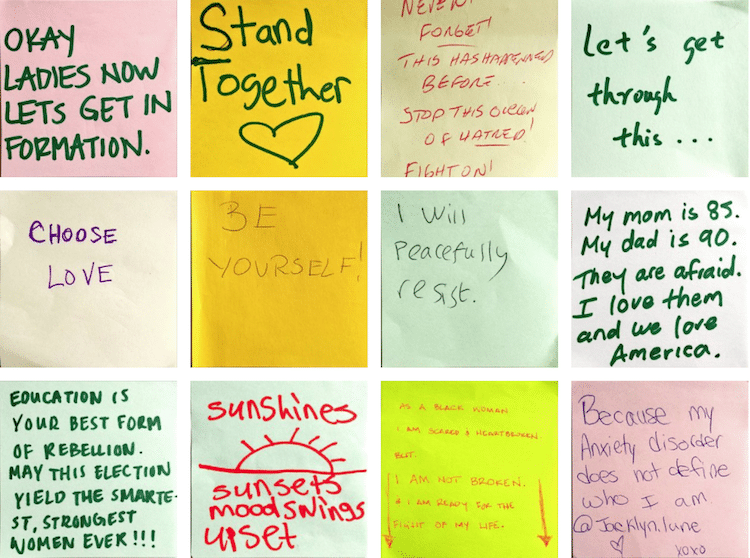 OKAY
LADIES NOW
LETS GET IN
FORMATION.
Stand
Together
NEVER
FORGET!
THIS HAS HAPPENED
BEFORE.
STOP THIS
OF HATRED!
FIGHT ON!
Let's get
through
this ...
CHOOSE
LOVE
BE
YOURSELF!
I Will
Peacefully
resist.
My mom is 85.
My dad is 90.
They are afraid.
I love them
and we love
America.
EDUCATION IS
YOUR BEST FORM
OF REBELLION.
MAY THIS ELECTION
YIELD THE SMARTE-
ST, STRONGEST
WOMEN EVER!!!
sunshines
sunsets
moodswings
upset
AS A BLACK WOMAN
I AM SCARED & HEARTBROKEN.
BUT.
I AM NOT BROKEN.
& I AM READY FOR THE
FIGHT OF MY LIFE.
Because my
Anxiety disorder
does not define
who I am
xoxo